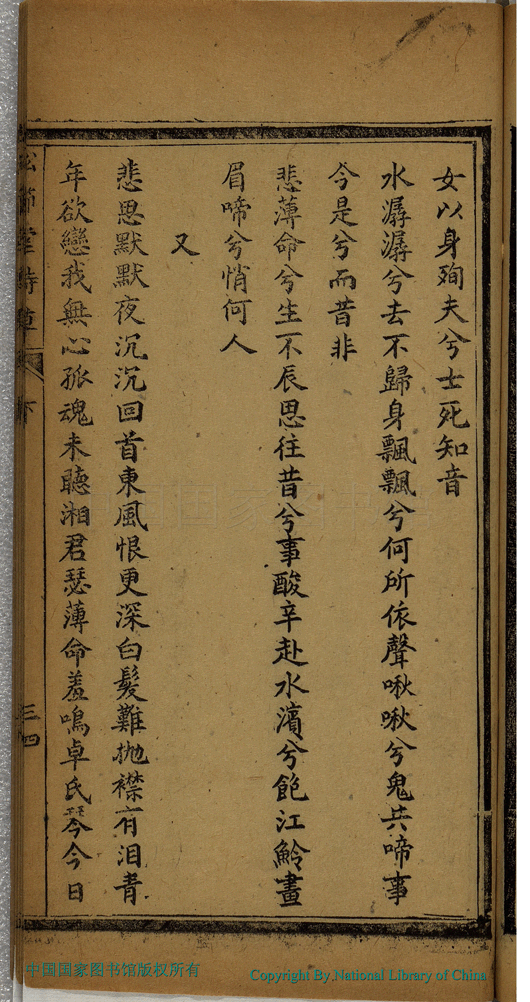 女以身殉夫兮士死知音
水潺潺兮去不歸身飄飄兮何所依聲啾啾兮鬼共啼事
今是兮而昔非
悲薄命兮生不辰思往昔兮事酸辛赴水濱兮飽江魿畫
眉啼兮悄何人
又
悲思默默夜沉沉回首東風恨更深白髮難拋襟有泪青
年欲戀我無心孤魂未聽湘君瑟薄命羞鳴卓氏今今日
節堂詩草
下
三四
中国国家图书馆版权所有
Copyright By National Library of China